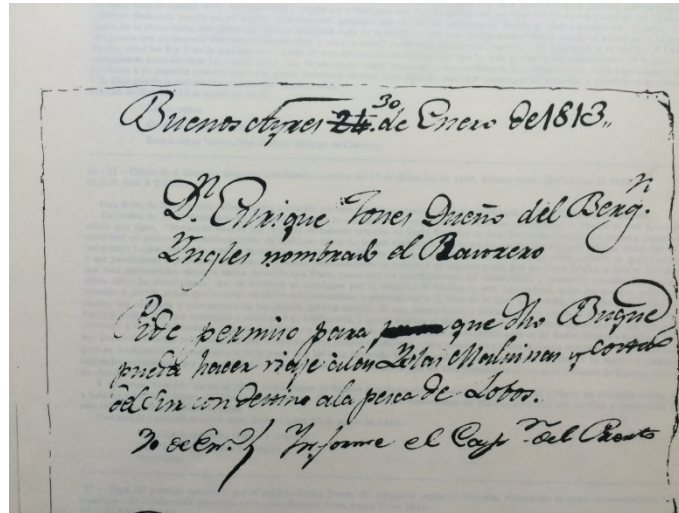 Buenos Ayres 24. 30 de Enero de 1813,,
Dn. Enrique Jones Dueño del Bergn.
Yngles nombrado el
Pide permiso para que dho Buque
pueda hacer viaje à las Yslas Malvinas y costas
del Sur con destino ala pesca de Lobos.
30 de En.º Ynforme el Capn. del Puerto